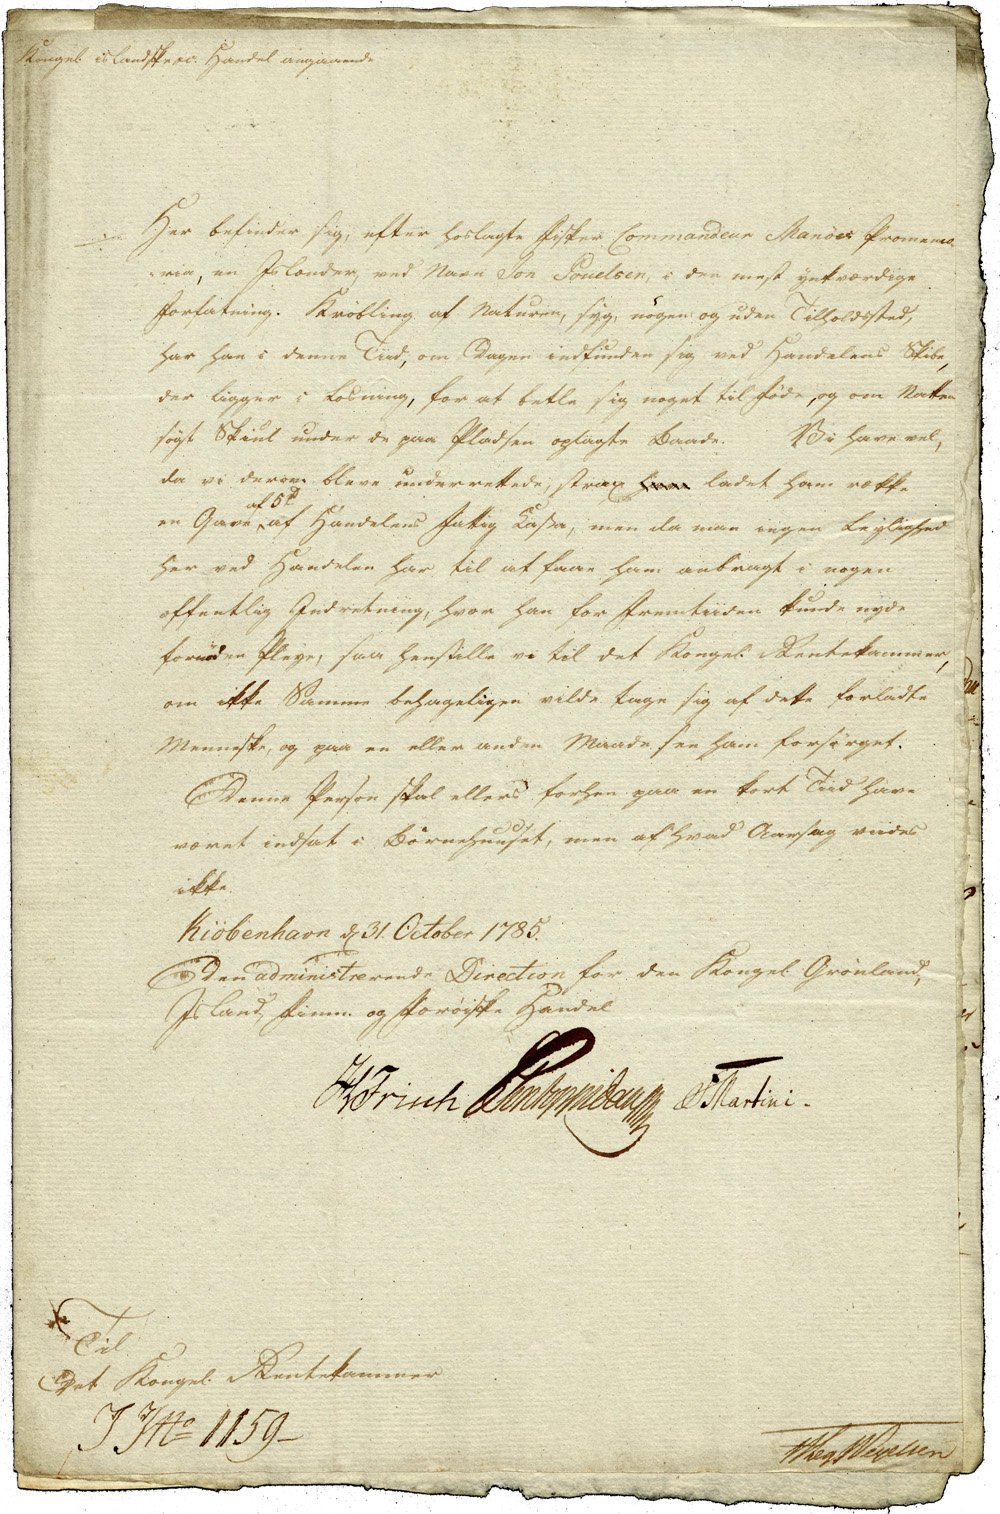 Kongel. islandske &c. Handel angaaende
Her befinder sig, efter hoslagte Fisker Commandeur Manöes Promemo-
ria, en Islænder, ved Navn Jon Pouelsen, i den mest ynkværdige
Forfatning. Krøbling af Naturen, syg, nögen og uden Tilholdssted,
har han i denne Tiid, om Dagen indfunden sig ved Handelens Skibe,
der ligger i Losning, for at betle sig noget til Føde, og om Natten
søgt Skiul under de paa Pladsen oplagte Baade. Vi have vel,
da vi derom bleve underrettede, strax ladet ham række
en Gave af 5 rd af Handelens Fattig Cassa, men da man ingen Leylighed
her ved Handelen har til at faae ham anbragt i nogen
offentlig Indretning, hvor han for Fremtiiden kunde nyde
fornøden Pleye, saa henstille vi til det Kongel. Rentekammer,
om ikke Samme behageligen vilde tage sig af dette forladte
Menneske, og paa en eller anden Maade see ham forsörget.
Denne Person skal ellers forhen paa en kort Tiid have
været indsat i Börnehuuset, men af hvad Aarsag viides
ikke.
Kiöbenhavn d 31. October 1785.
Den administrerende Direction for den Kongel. Grönland,
Island, Finm. og Forøiske Handel
HFrisch Martini.
Til
Det Kongel. Rentekammer
I J No 1159